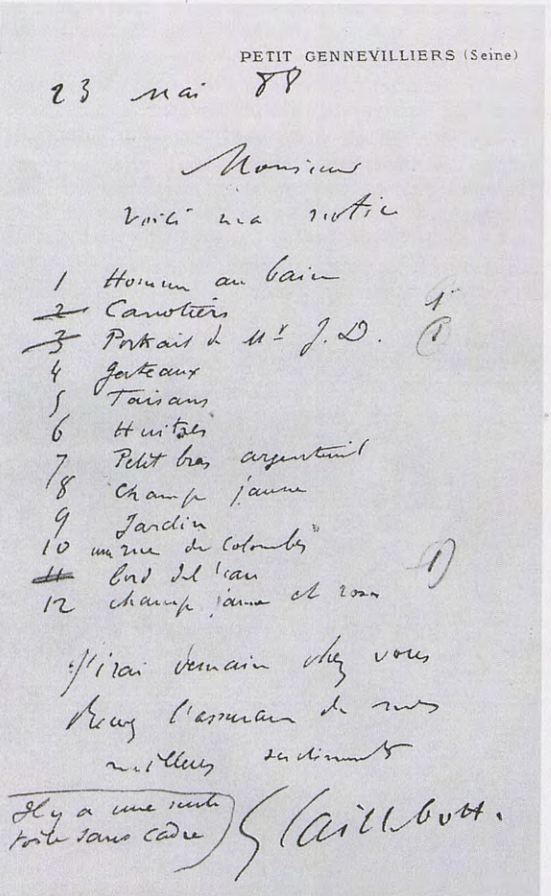 PETIT GENNEVILLIERS (Seine)
23 mai 88
Monsieur
Voilà ma notice
1 Homme au bain
2 Canotiers
3 Portrait de Mr J. D.
4 gateaux
5 Faisans
6 Huitres
7 Petit bras argenteuil
8 Champ jaune
9 Jardin
10 une rue de Colombes
11 bord de l'eau
12 champ jaune et rose
J'irai demain chez vous
Recevez l'assurance de mes
meilleurs sentiments
G Caillebotte.
Il y a une seule
toile sans cadre